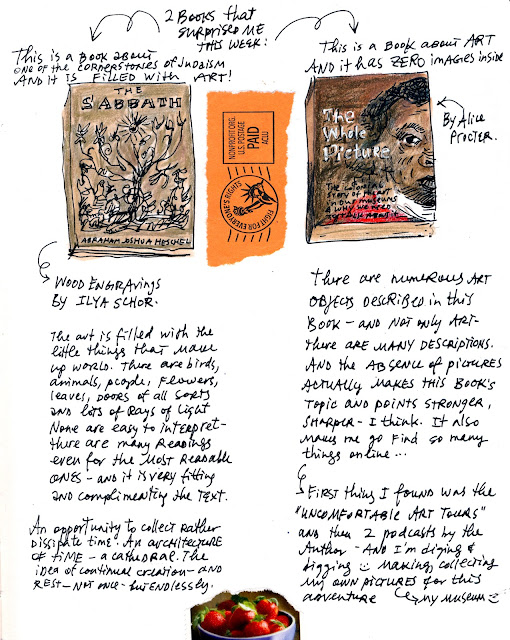 2 Books that
surprised me
this week:
This is a book about
one of the cornerstones of Judaism
and it is filled with art!
THE
SABBATH
ABRAHAM JOSHUA HESCHEL
Wood Engravings
by ILYA SCHOR.
The art is filled with the
little things that make
up world. There are birds,
animals, people, flowers,
leaves, doors of all sorts
and lots of Rays of light
None are easy to interpret-
there are many readings
even for the most readable
ones - and it is very fitting
and complimenting the text.
An opportunity to collect rather
dissipate time. An architecture
of time - a cathedral. The
idea of continual creation - and
rest - not once - but endlessly.
NONPROFIT ORG.
U.S. POSTAGE
PAID
ACLU
FIGHT FOR EVERYONE'S RIGHTS
This is a book about ART
And it has ZERO images inside
The
Whole
Picture
The colonial
story of the art
in our museums
& why we need
to talk about it
By Alice
Procter.
There are numerous art
objects described in this
book - and not only art-
there are many descriptions.
And the absence of pictures
actually makes this book's
topic and points stronger,
sharper - I think. It also
makes me go find so many
things online...
First thing I found was the
"Uncomfortable Art Tours"
and then 2 podcasts by the
Author - And I'm diging &
digging making, collecting
my own pictures for this
adventure my museum